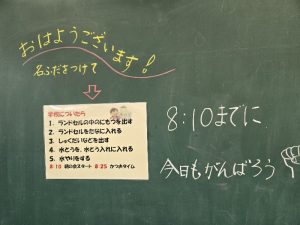 おはようございます！
名ふだをつけて
学校についたら
1. ランドセルの中のにもつを出す
2. ランドセルをたなに入れる
3. しゅくだいなどを出す
4. 水とうを、水とう入れに入れる
5. 水やりをする
8:10 朝の会スタート 8:25 かつおタイム
8:10までに
今日もがんばろう